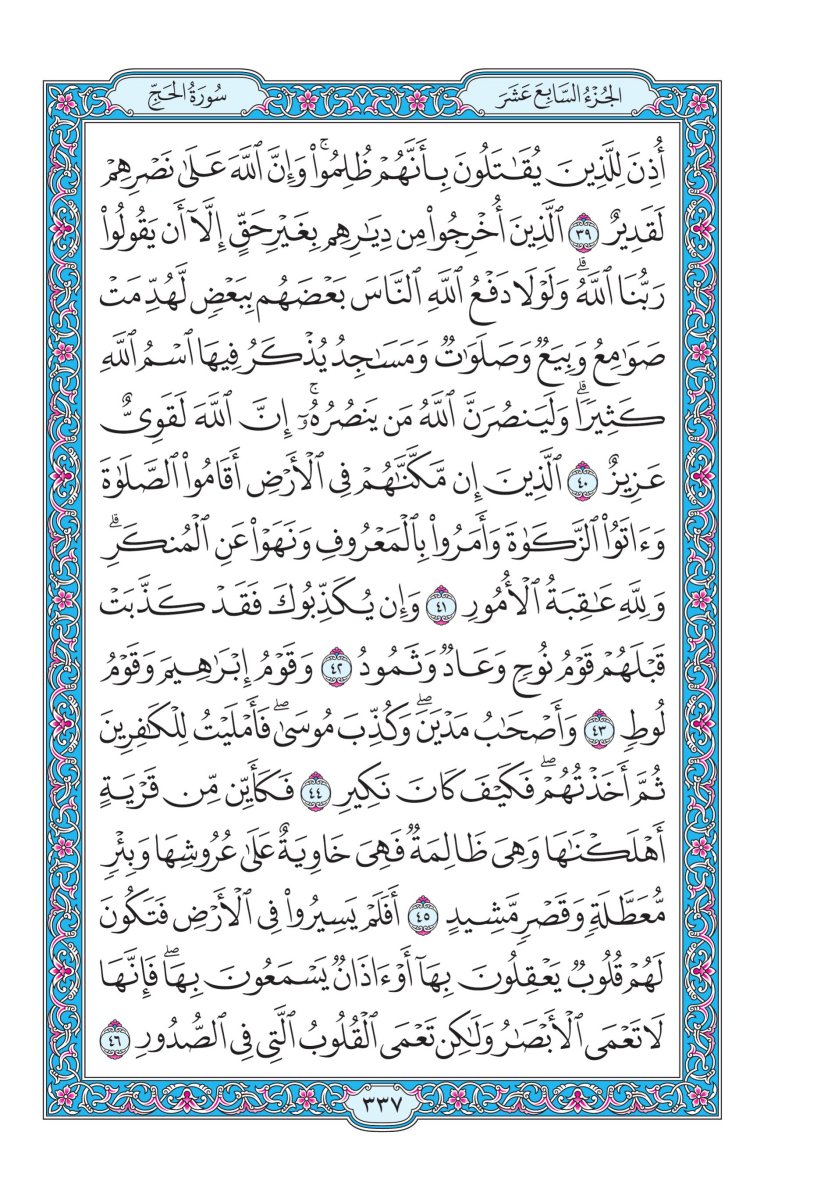 الجُزْءُ السَّابِعَ عَشَرَ
سُورَةُ الحَجِّ
أُذِنَ لِلَّذِينَ يُقَٰتَلُونَ بِأَنَّهُمْ ظُلِمُواْۚ وَإِنَّ ٱللَّهَ عَلَىٰ نَصْرِهِمْ
لَقَدِيرٌ ٣٩ ٱلَّذِينَ أُخْرِجُواْ مِن دِيَٰرِهِم بِغَيْرِ حَقٍّ إِلَّآ أَن يَقُولُواْ
رَبُّنَا ٱللَّهُۗ وَلَوْلَا دَفْعُ ٱللَّهِ ٱلنَّاسَ بَعْضَهُم بِبَعْضٍ لَّهُدِّمَتْ
صَوَٰمِعُ وَبِيَعٌ وَصَلَوَٰتٌ وَمَسَٰجِدُ يُذْكَرُ فِيهَا ٱسْمُ ٱللَّهِ
كَثِيرًاۗ وَلَيَنصُرَنَّ ٱللَّهُ مَن يَنصُرُهُۥٓۚ إِنَّ ٱللَّهَ لَقَوِىٌّ
عَزِيزٌ ٤٠ ٱلَّذِينَ إِن مَّكَّنَّٰهُمْ فِى ٱلْأَرْضِ أَقَامُواْ ٱلصَّلَوٰةَ
وَءَاتَوُاْ ٱلزَّكَوٰةَ وَأَمَرُواْ بِٱلْمَعْرُوفِ وَنَهَوْاْ عَنِ ٱلْمُنكَرِۗ
وَلِلَّهِ عَٰقِبَةُ ٱلْأُمُورِ ٤١ وَإِن يُكَذِّبُوكَ فَقَدْ كَذَّبَتْ
قَبْلَهُمْ قَوْمُ نُوحٍ وَعَادٌ وَثَمُودُ ٤٢ وَقَوْمُ إِبْرَٰهِيمَ وَقَوْمُ
لُوطٍ ٤٣ وَأَصْحَٰبُ مَدْيَنَۖ وَكُذِّبَ مُوسَىٰۖ فَأَمْلَيْتُ لِلْكَٰفِرِينَ
ثُمَّ أَخَذْتُهُمْۖ فَكَيْفَ كَانَ نَكِيرِ ٤٤ فَكَأَيِّن مِّن قَرْيَةٍ
أَهْلَكْنَٰهَا وَهِىَ ظَالِمَةٌ فَهِىَ خَاوِيَةٌ عَلَىٰ عُرُوشِهَا وَبِئْرٍ
مُّعَطَّلَةٍ وَقَصْرٍ مَّشِيدٍ ٤٥ أَفَلَمْ يَسِيرُواْ فِى ٱلْأَرْضِ فَتَكُونَ
لَهُمْ قُلُوبٌ يَعْقِلُونَ بِهَآ أَوْ ءَاذَانٌ يَسْمَعُونَ بِهَاۖ فَإِنَّهَا
لَا تَعْمَى ٱلْأَبْصَٰرُ وَلَٰكِن تَعْمَى ٱلْقُلُوبُ ٱلَّتِى فِى ٱلصُّدُورِ ٤٦
٣٣٧